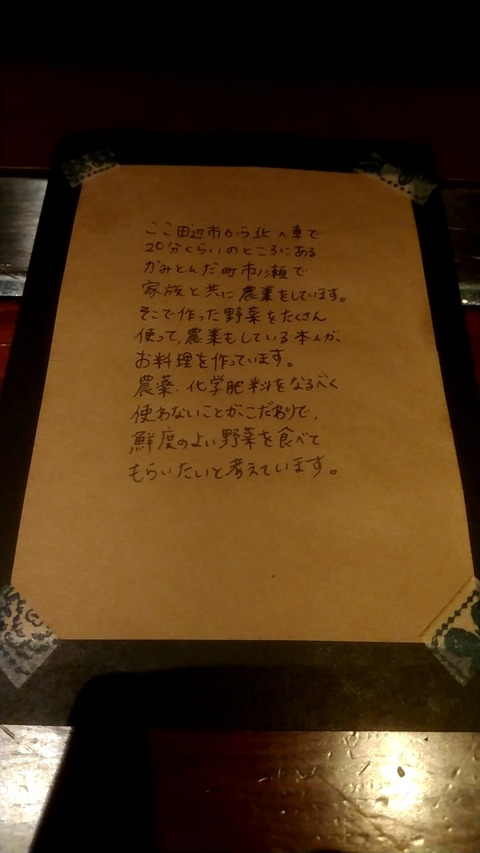 ここ田辺市から北へ車で
20分くらいのところにある
かみとんだ町市ノ瀬で
家族と共に農業をしています。
そこで作った野菜をたくさん
使って、農業もしている本人が、
お料理を作っています。
農薬・化学肥料をなるべく
使わないことがこだわりで、
鮮度のよい野菜を食べて
もらいたいと考えています。